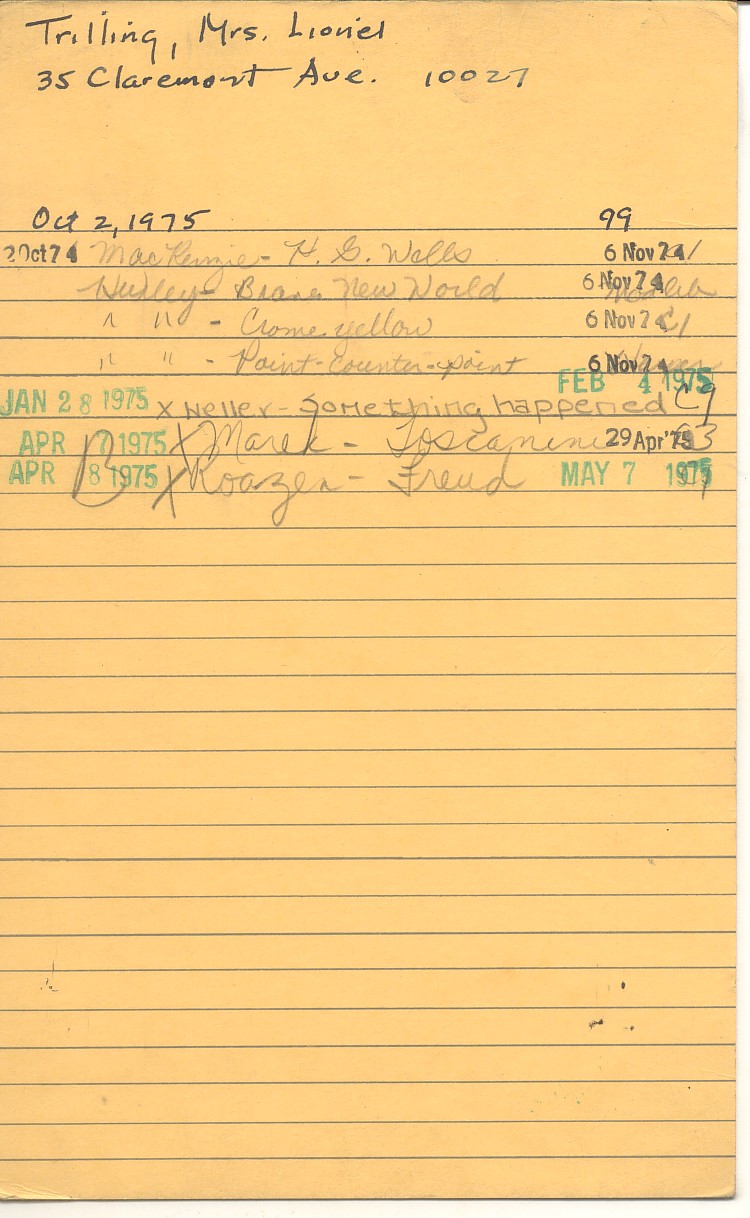 Trilling, Mrs. Lionel
35 Claremont Ave. 10027
Oct 2, 1975 99
2 Oct 74 MacKenzie - H. G. Wells 6 Nov 74
Huxley - Brave New World 6 Nov 74
" " - Crome yellow 6 Nov 74
" " - Point-Counter-point 6 Nov 74
JAN 28 1975 X Heller - Something happened FEB 4 1975 C9
APR 7 1975 X Marek - Toscanini 29 Apr '75
APR 8 1975 X Roazen - Freud MAY 7 1975